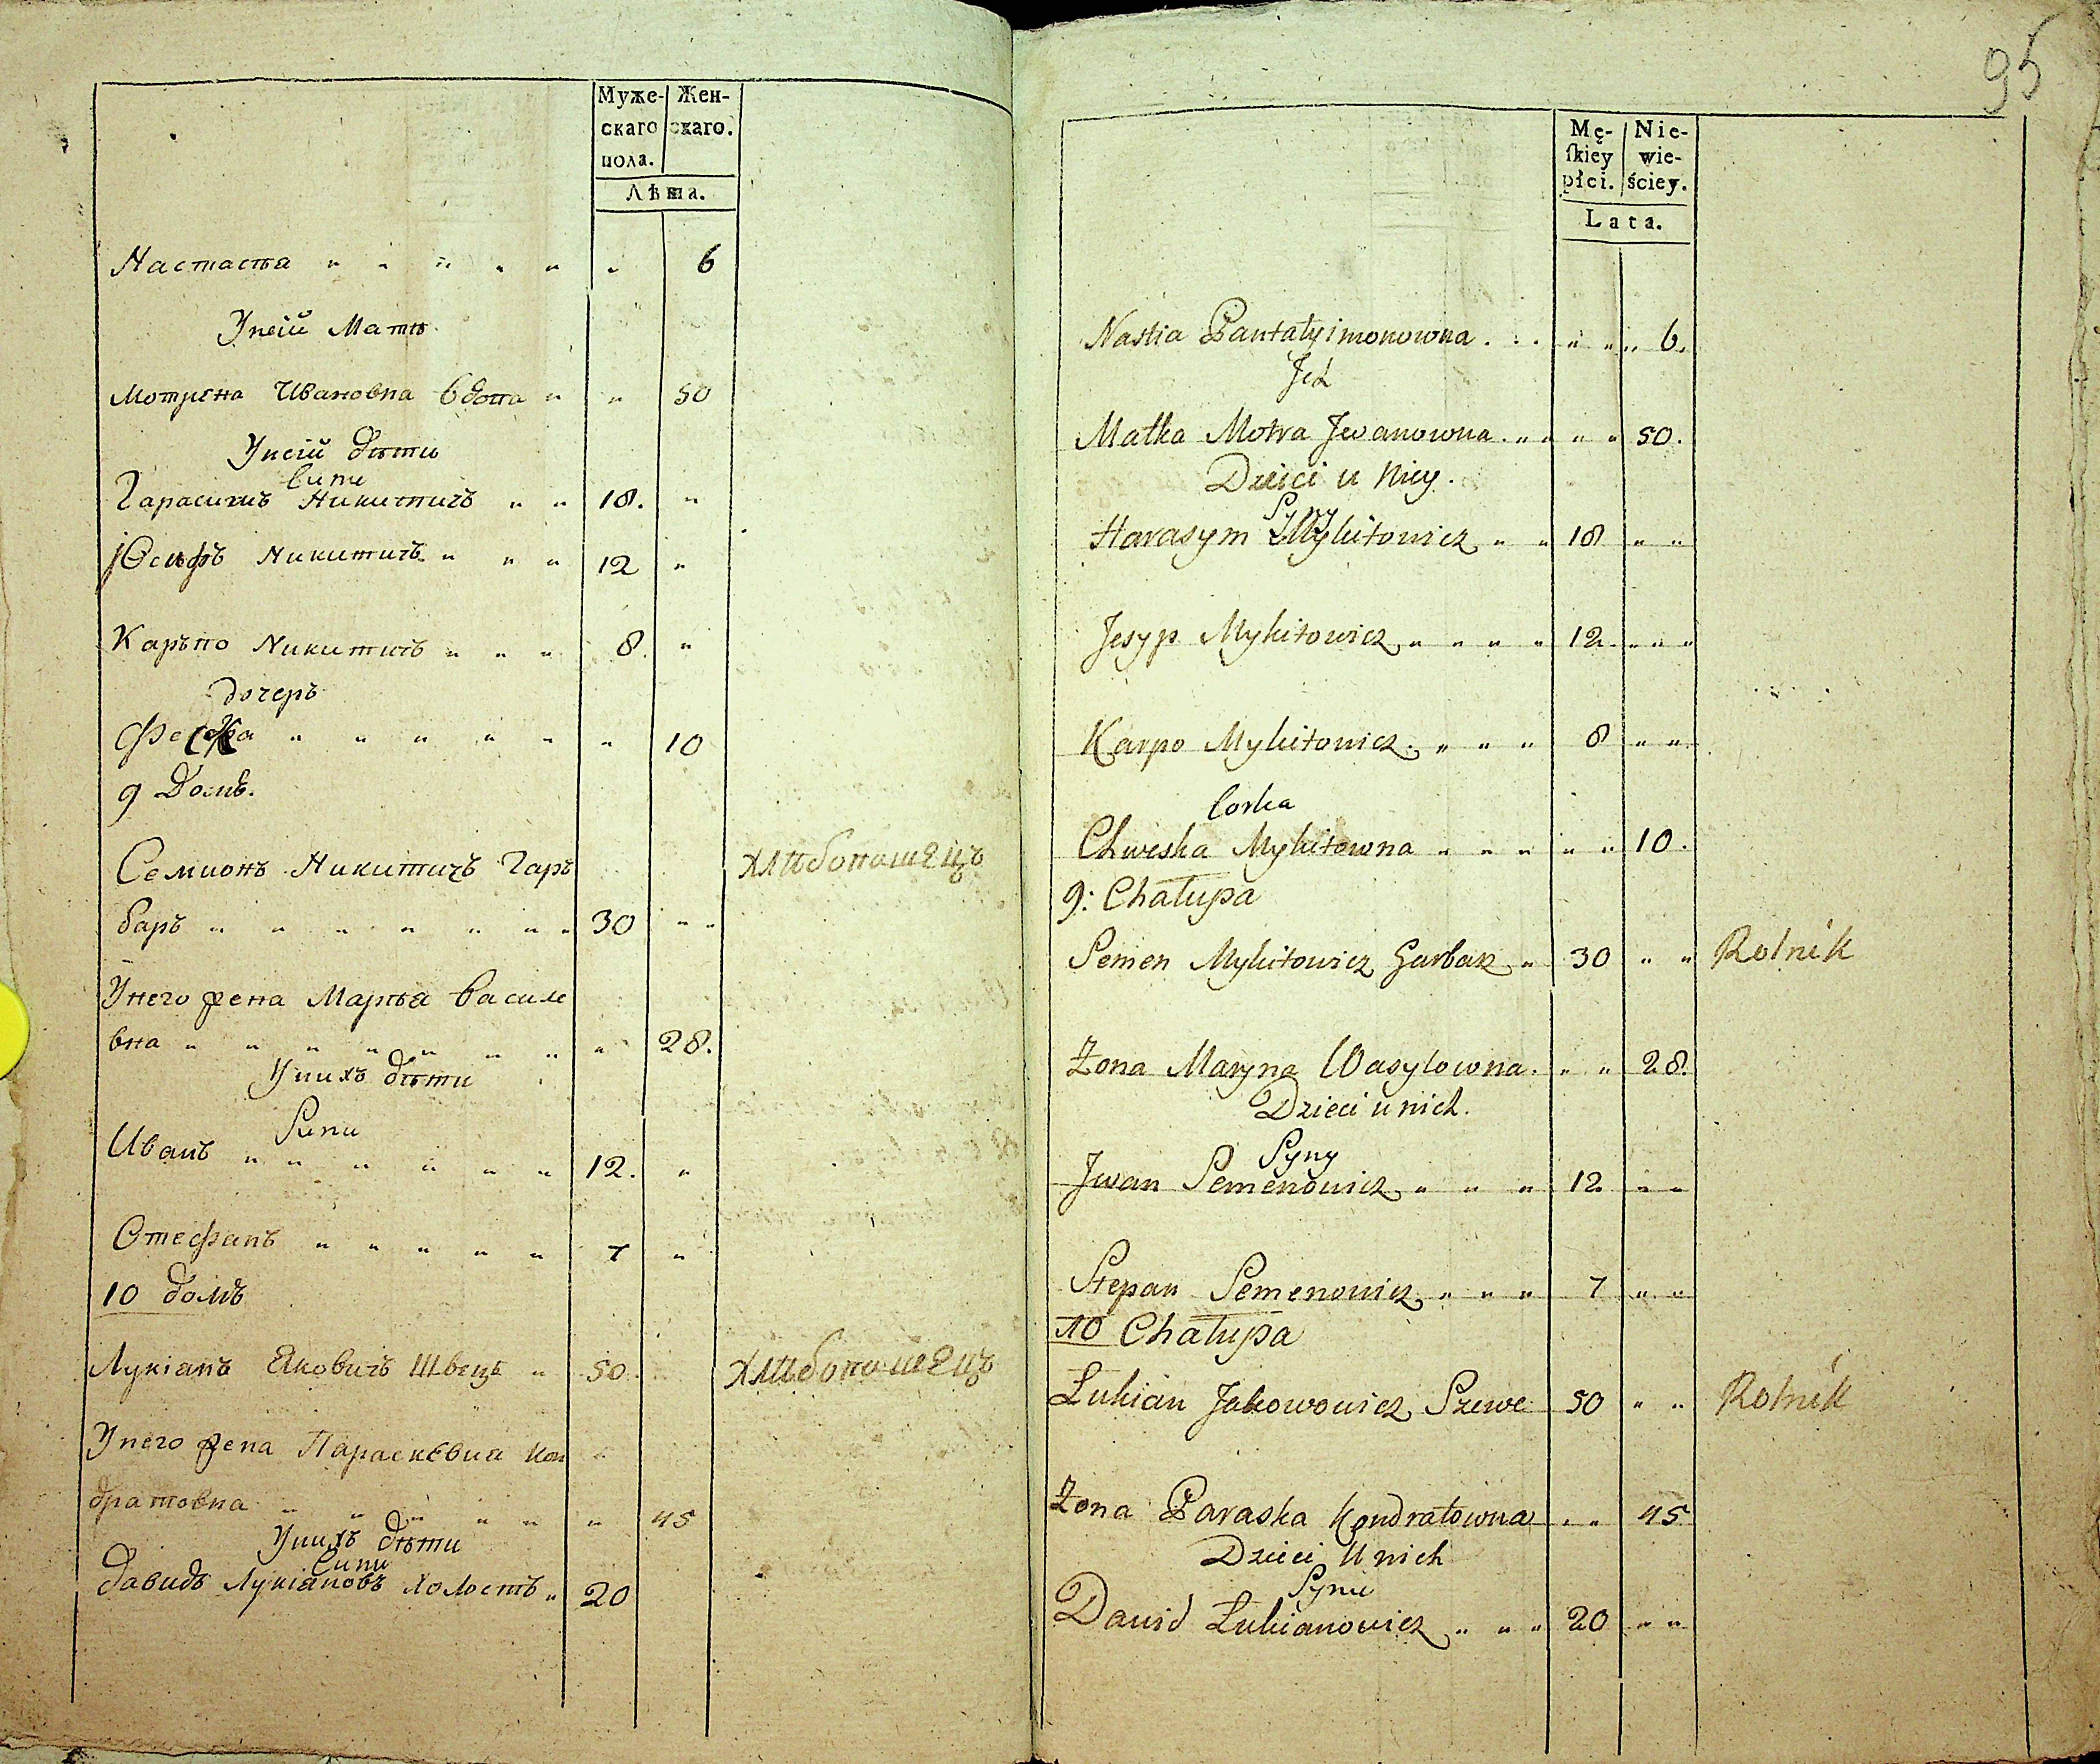 Муже-
скаго
пола.
Жен-
скаго.
Лѣта.
Настасія " " " " " " 6
Унеій Мать
Мотрена Ивановна вдова " " 50
Унеій дѣти
сини
Гарасимъ Никитичъ " " 18. "
Юсифъ Никитичъ " " " 12 "
Карьпо Никитичъ " " " 8. "
дочерь
Феска " " " " " " 10
9 Домъ.
Семионъ Никитичъ Гарь
баръ " " " " " " " 30 " "
хлѣбопашецъ
Унего жена Марія Василе
вна " " " " " " " " 28.
Унихъ дѣти
Сини
Иванъ " " " " " " 12. "
Стефанъ " " " " " 7 "
10 домъ
Лукіанъ Яковичъ Швецъ " 50.
хлѣбопашецъ
Унего жена Параскевия Кон
дратовна " " " " " " 45
Унихъ дѣти
Сини
Давидъ Лукіановъ холостъ " 20
95
Mę-
ſkiey
płci.
Nie-
wie-
ściey.
Lata.
Nastia Pantalyimonowna . . . " " " 6.
Jey
Matka Motra Jwanowna . " " " " 50.
Dzieci u Niey.
Syny
Harasym Mykitowicz " " 18 " "
Jesyp Mykitowicz " " " " 12 " " "
Karpo Mykitowicz . " " " 8 " "
Corka
Chweska Mykitowna " " " " " 10.
9: Chałupa
Semen Mykitowicz Garbarz " 30 " " Rolnik
Żona Maryna Wasylowna . " " 28.
Dzieci u nich.
Syny
Jwan Semenowicz " " " 12 " "
Stepan Semenowicz " " " 7 " "
10 Chałupa
Łukian Jakowowicz Szewc 50 " " Rolnik
Żona Paraska Kondratowna " " 45
Dzieci U nich
Syny
Dawid Łukianowicz " " " 20 " "